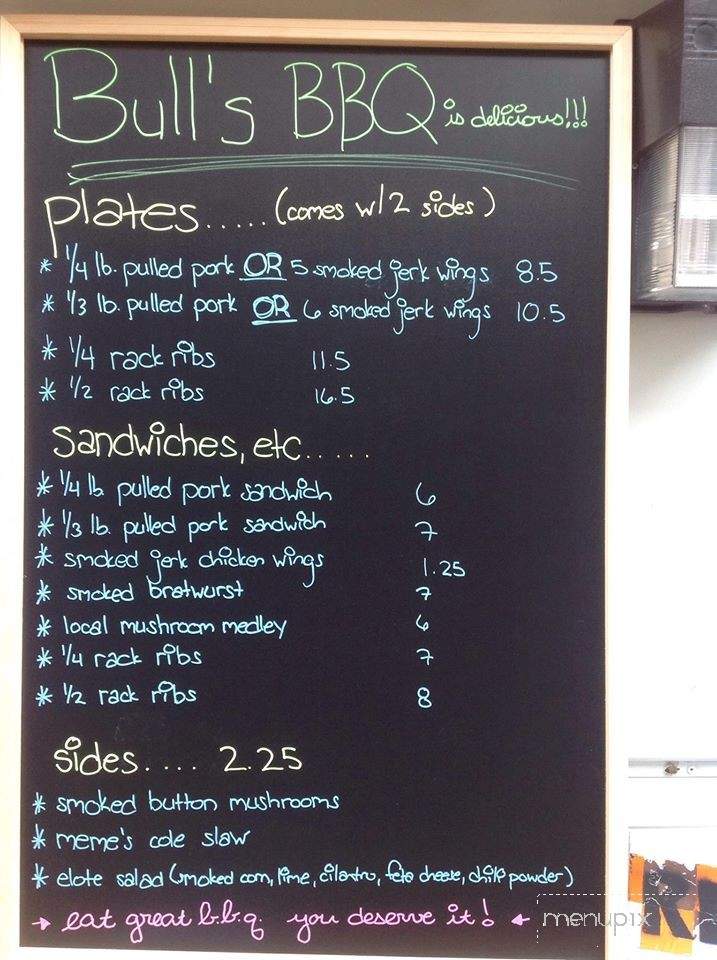 Bull's BBQ is delicious!!!
plates..... (comes w/2 sides)
* 1/4 lb. pulled pork OR 5 smoked jerk wings 8.5
* 1/3 lb. pulled pork OR 6 smoked jerk wings 10.5
* 1/4 rack ribs 11.5
* 1/2 rack ribs 16.5
sandwiches, etc.....
* 1/4 lb. pulled pork sandwich 6
* 1/3 lb. pulled pork sandwich 7
* smoked jerk chicken wings 1.25
* smoked bratwurst 7
* local mushroom medley 6
* 1/4 rack ribs 7
* 1/2 rack ribs 8
sides.... 2.25
* smoked button mushrooms
* meme's cole slaw
* elote salad (smoked corn, lime, cilantro, feta cheese, chili powder)
→ eat great b.b.q. you deserve it! ←
menupix